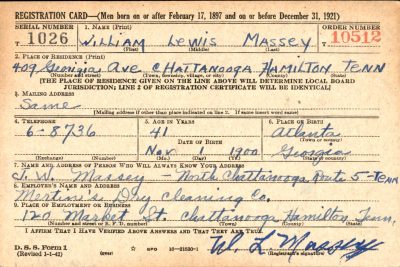 REGISTRATION CARD—(Men born on or after February 17, 1897 and on or before December 31, 1921)
SERIAL NUMBER 1. NAME (Print) ORDER NUMBER
T 1026 William Lewis Massey T 10512
(First) (Middle) (Last)
2. PLACE OF RESIDENCE (Print)
409 Georgia Ave CHATTANOOGA HAMILTON TENN
(Number and street) (Town, township, village, or city) (County) (State)
[THE PLACE OF RESIDENCE GIVEN ON THE LINE ABOVE WILL DETERMINE LOCAL BOARD
JURISDICTION; LINE 2 OF REGISTRATION CERTIFICATE WILL BE IDENTICAL]
3. MAILING ADDRESS
Same
[Mailing address if other than place indicated on line 2. If same insert word same]
4. TELEPHONE 5. AGE IN YEARS 6. PLACE OF BIRTH
6-8736 41 Atlanta
DATE OF BIRTH (Town or county)
Nov 1 1900 Georgia
(Exchange) (Number) (Mo.) (Day) (Yr.) (State or country)
7. NAME AND ADDRESS OF PERSON WHO WILL ALWAYS KNOW YOUR ADDRESS
J. W. Massey - North Chattanooga Route 5 - Tenn
8. EMPLOYER'S NAME AND ADDRESS
Dry Cleaning Co.
9. PLACE OF EMPLOYMENT OR BUSINESS
120 Market St. Chattanooga Hamilton Tenn.
(Number and street or R. F. D. number) (Town) (County) (State)
I AFFIRM THAT I HAVE VERIFIED ABOVE ANSWERS AND THAT THEY ARE TRUE.
D. S. S. Form 1
(Revised 1-1-42) (over) 16-21630-1 W. L. Massey
(Registrant's signature)